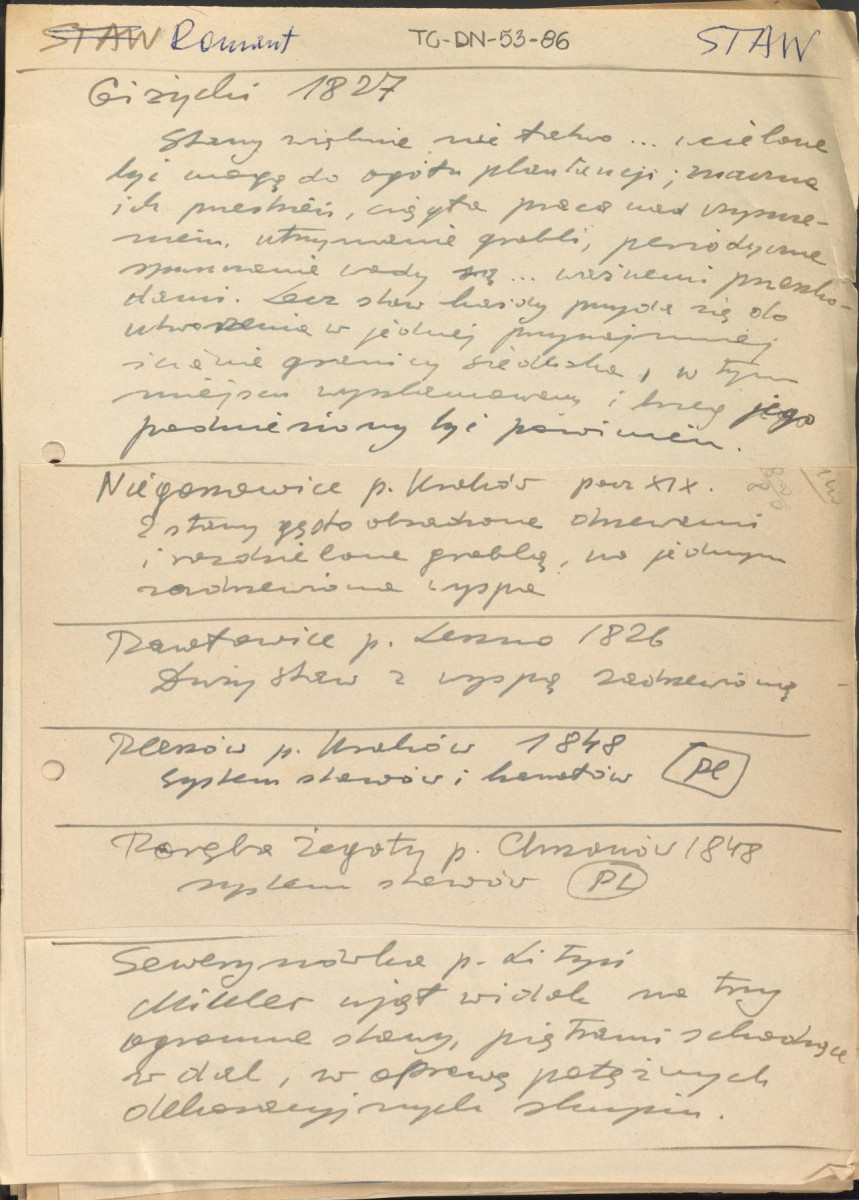 STAW Romant TG-DN-53-86 STAW
Giżycki 1827
Stawy większe nie łatwo ... wcielone
być mogą do ogółu plantacji; znaczna
ich przestrzeń, ciągła praca nad
utrzymanie grobli, periodyczne
spuszczanie wody są ... ważnemi przeszko-
dami. Lecz staw każdy przyda się do
utworzenia w jednej przynajmniej
ścianie granicy siedliska, w tym
miejscu wyszlamowany i brzeg jego
podniesiony być powinien.
Niegoszowice p. Kraków pocz XIX.
2 stawy gęsto obsadzone drzewami
i rozdzielone groblą, na jednym
zadrzewiona wyspa
Pawłowice p. Leszno 1826
Duży staw z wyspą zadrzewioną
Pleszów p. Kraków 1848
System stawów i kanałów PL
Poręba Żegoty p. Chrzanów 1848
system stawów PL
Sewerynówka p. Lityń
Mikler ujął widok na trzy
ogromne stawy, piętrami schodzące
w dal, w oprawę potężnych
dekoracyjnych skupin.